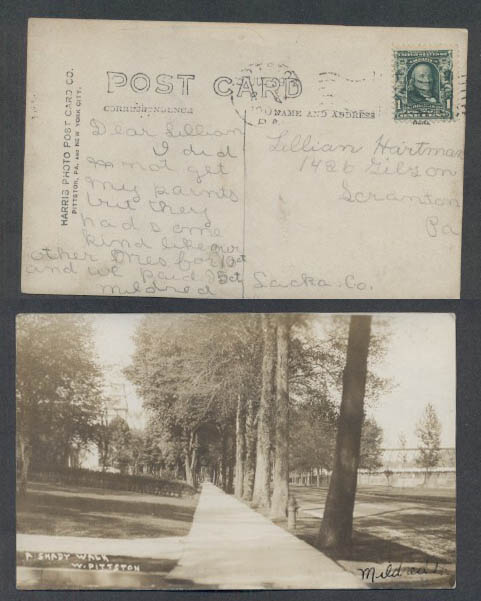 POST CARD
CORRESPONDENCE
NAME AND ADDRESS
HARRIS PHOTO POST CARD CO.
PITTSTON, PA. AND NEW YORK CITY.
Dear Lillian
I did
not get
my paints
but they
had some
kind like our
other ones for 10ct
and we paid 25cts
Mildred
Lillian Hartman
1426 Gibson
Scranton
Pa
Lacka. Co.
1
A SHADY WALK
W. PITTSTON
Mildred